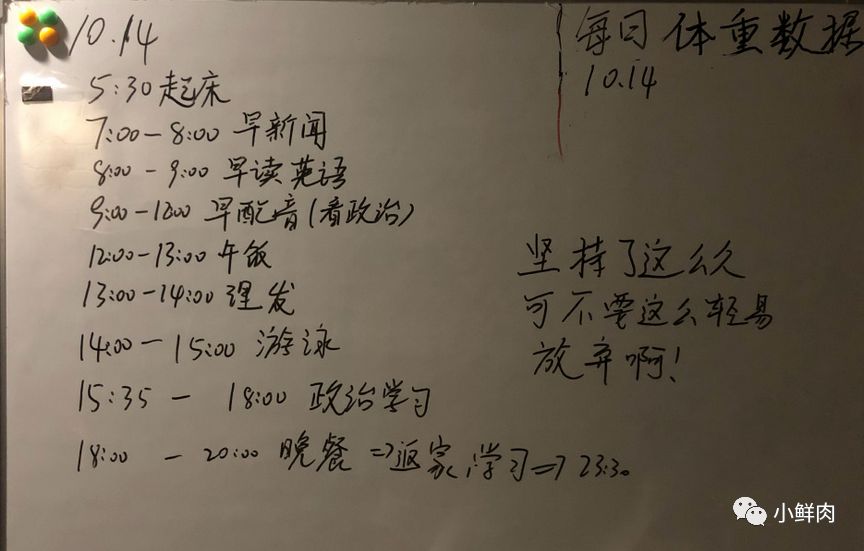 10.14
5:30 起床
7:00-8:00 早新闻
8:00-9:00 早读英语
9:00-12:00 早配音(看政治)
12:00-13:00 午饭
13:00-14:00 理发
14:00-15:00 游泳
15:35-18:00 政治学习
18:00-20:00 晚餐⇒返家,学习⇒23:30
每日体重数据
10.14
坚持了这么久
可不要这么轻易
放弃啊!
小鲜肉